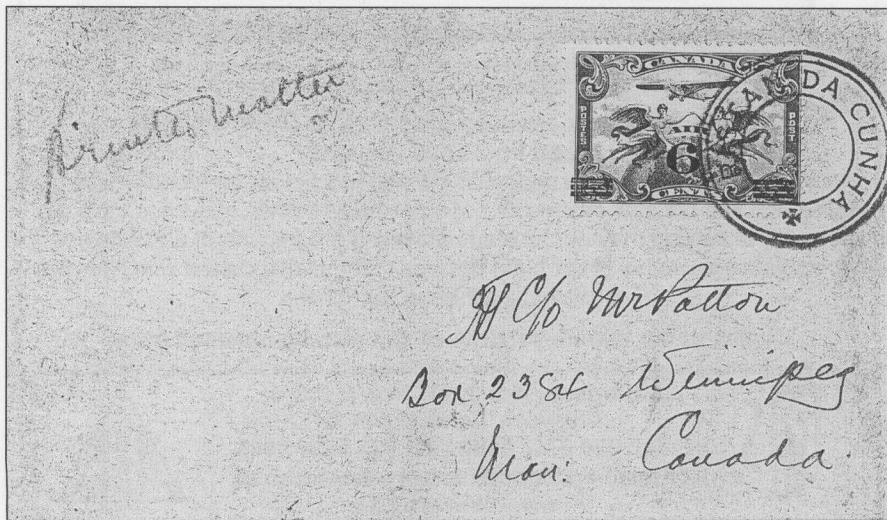 Printed Matter
CANADA
POSTES
AIR
POST
6
CENTS
TRISTAN DA CUNHA
C/o Mr Patton
Box 2384 Winnipeg
Man: Canada.